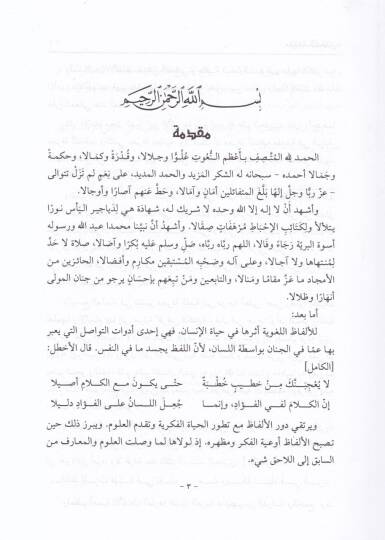 بسم الله الرحمن الرحيم
مقدمة
الحمد لله المُتصِفِ بأعظم النُّعوتِ عُلُوًّا وجلالا، وقُدْرَةً وكمَالا، وحكمةً
وجَمَالا أحمده – سبحانه له الشكر المَزيد والحمد المديد، على نِعَمٍ لم تَزَلْ تتوالى
– عزّ ربًّا وجلّ إلهًا بَلَّغَ المتفائلين أمَانٍ وآمَالا، وحَطَّ عنهم آصارًا وأوجالا.
وأشهدُ أنْ لا إله إلا الله وحده لا شريك له، شهادَة هي لدياجير اليَأس نورًا
يتلألأ ولكتائبِ الإحْبَاطِ مُرْهَفَاتٍ صِقَالا. وأشهدُ أنّ نبيّنا محمدا عبد الله ورسوله
أسوة البريَّة رَجَاءً وفَالا، اللهم ربَّاه ربَّاه، صَلِّ وسلم عليه بُكَرًا وآصَالا، صلاة لا حَدَّ
لِمُنتهاها ولا آجالا، وعلى آله وصَحْبِه المُستبقين مكارِم وأفضَالا، الحائزين من
الأمجاد ما عَزَّ مقَامًا ومَنَالا، والتابعين ومَنْ تبِعَهم بإحسَانٍ يرجو من جنان المولى
أنهارًا وظلالا.
أما بعد:
للألفاظ اللغوية أثرها في حياة الإنسان. فهي إحدى أدوات التواصل التي يعبر
بها عمّا في الجنان بواسطة اللسان، لأنّ اللفظ يجسد ما في النفس. قال الأخطل:
[الكامل]
لا يُعْجِبَنّك مِنْ خطيبٍ خُطْبَةٌ حتّى يكونَ مع الكلامِ أصيلا
إنّ الكلامَ لفي الفؤادِ، وإنما جُعلَ اللسانُ على الفؤادِ دليلا
ويرتقي دور الألفاظ مع تطور الحياة الفكرية وتقدم العلوم. ويبرز ذلك حين
تصبح الألفاظ أوعية الفكر ومظهره. إذ لولاها لما وصلت العلوم والمعارف من
السابق إلى اللاحق شيء.
– ٣ –